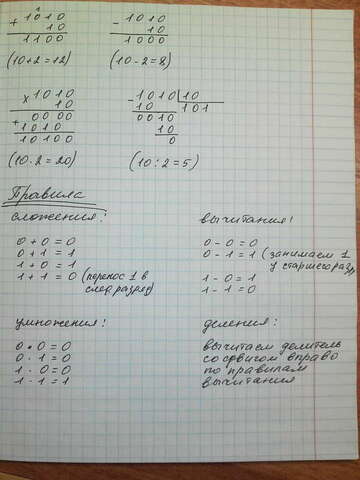 + 1010
10
1100
(10+2=12)
- 1010
10
1000
(10-2=8)
× 1010
10
+ 0000
1010
10100
(10·2=20)
- 1010 | 10
10 | 101
0010
10
0
(10:2=5)
Правила
сложения:
0+0=0
0+1=1
1+0=1
1+1=0 (перенос 1 в
след. разряд)
вычитания:
0-0=0
0-1=1 (занимаем 1
у старшего разр.
1-0=1
1-1=0
умножения:
0·0=0
0·1=0
1·0=0
1·1=1
деления:
вычитаем делитель
со сдвигом вправо
по правилам
вычитания